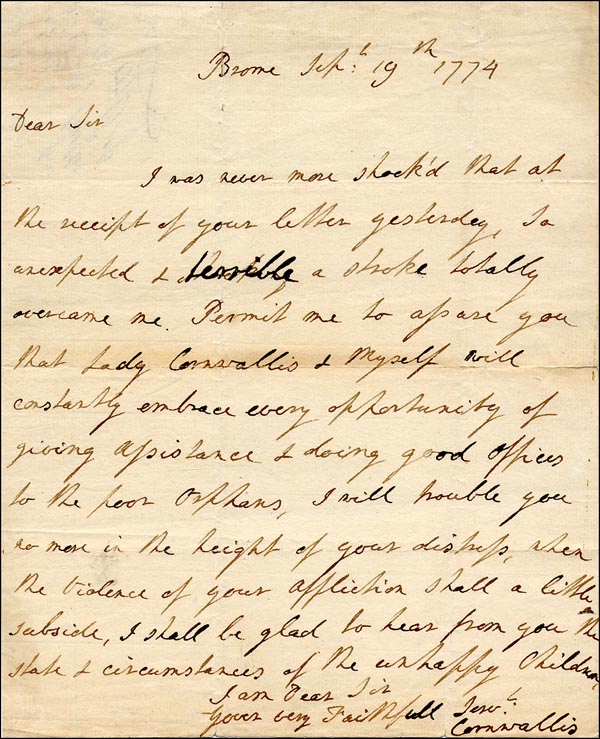 Brome Sept: 19th 1774
Dear Sir
I was never more shock'd that at
the receipt of your letter yesterday, So
unexpected & terrible a stroke totally
overcame me. Permit me to assure you
that Lady Cornwallis & Myself will
constantly embrace every opportunity of
giving Assistance & doing good offices
to the poor Orphans, I will trouble you
no more in the height of your distress, when
the Violence of your affliction shall a little
subside, I shall be glad to hear from you the
state & circumstances of the unhappy Children,
I am Dear Sir
Your very Faithfull Servt:
Cornwallis